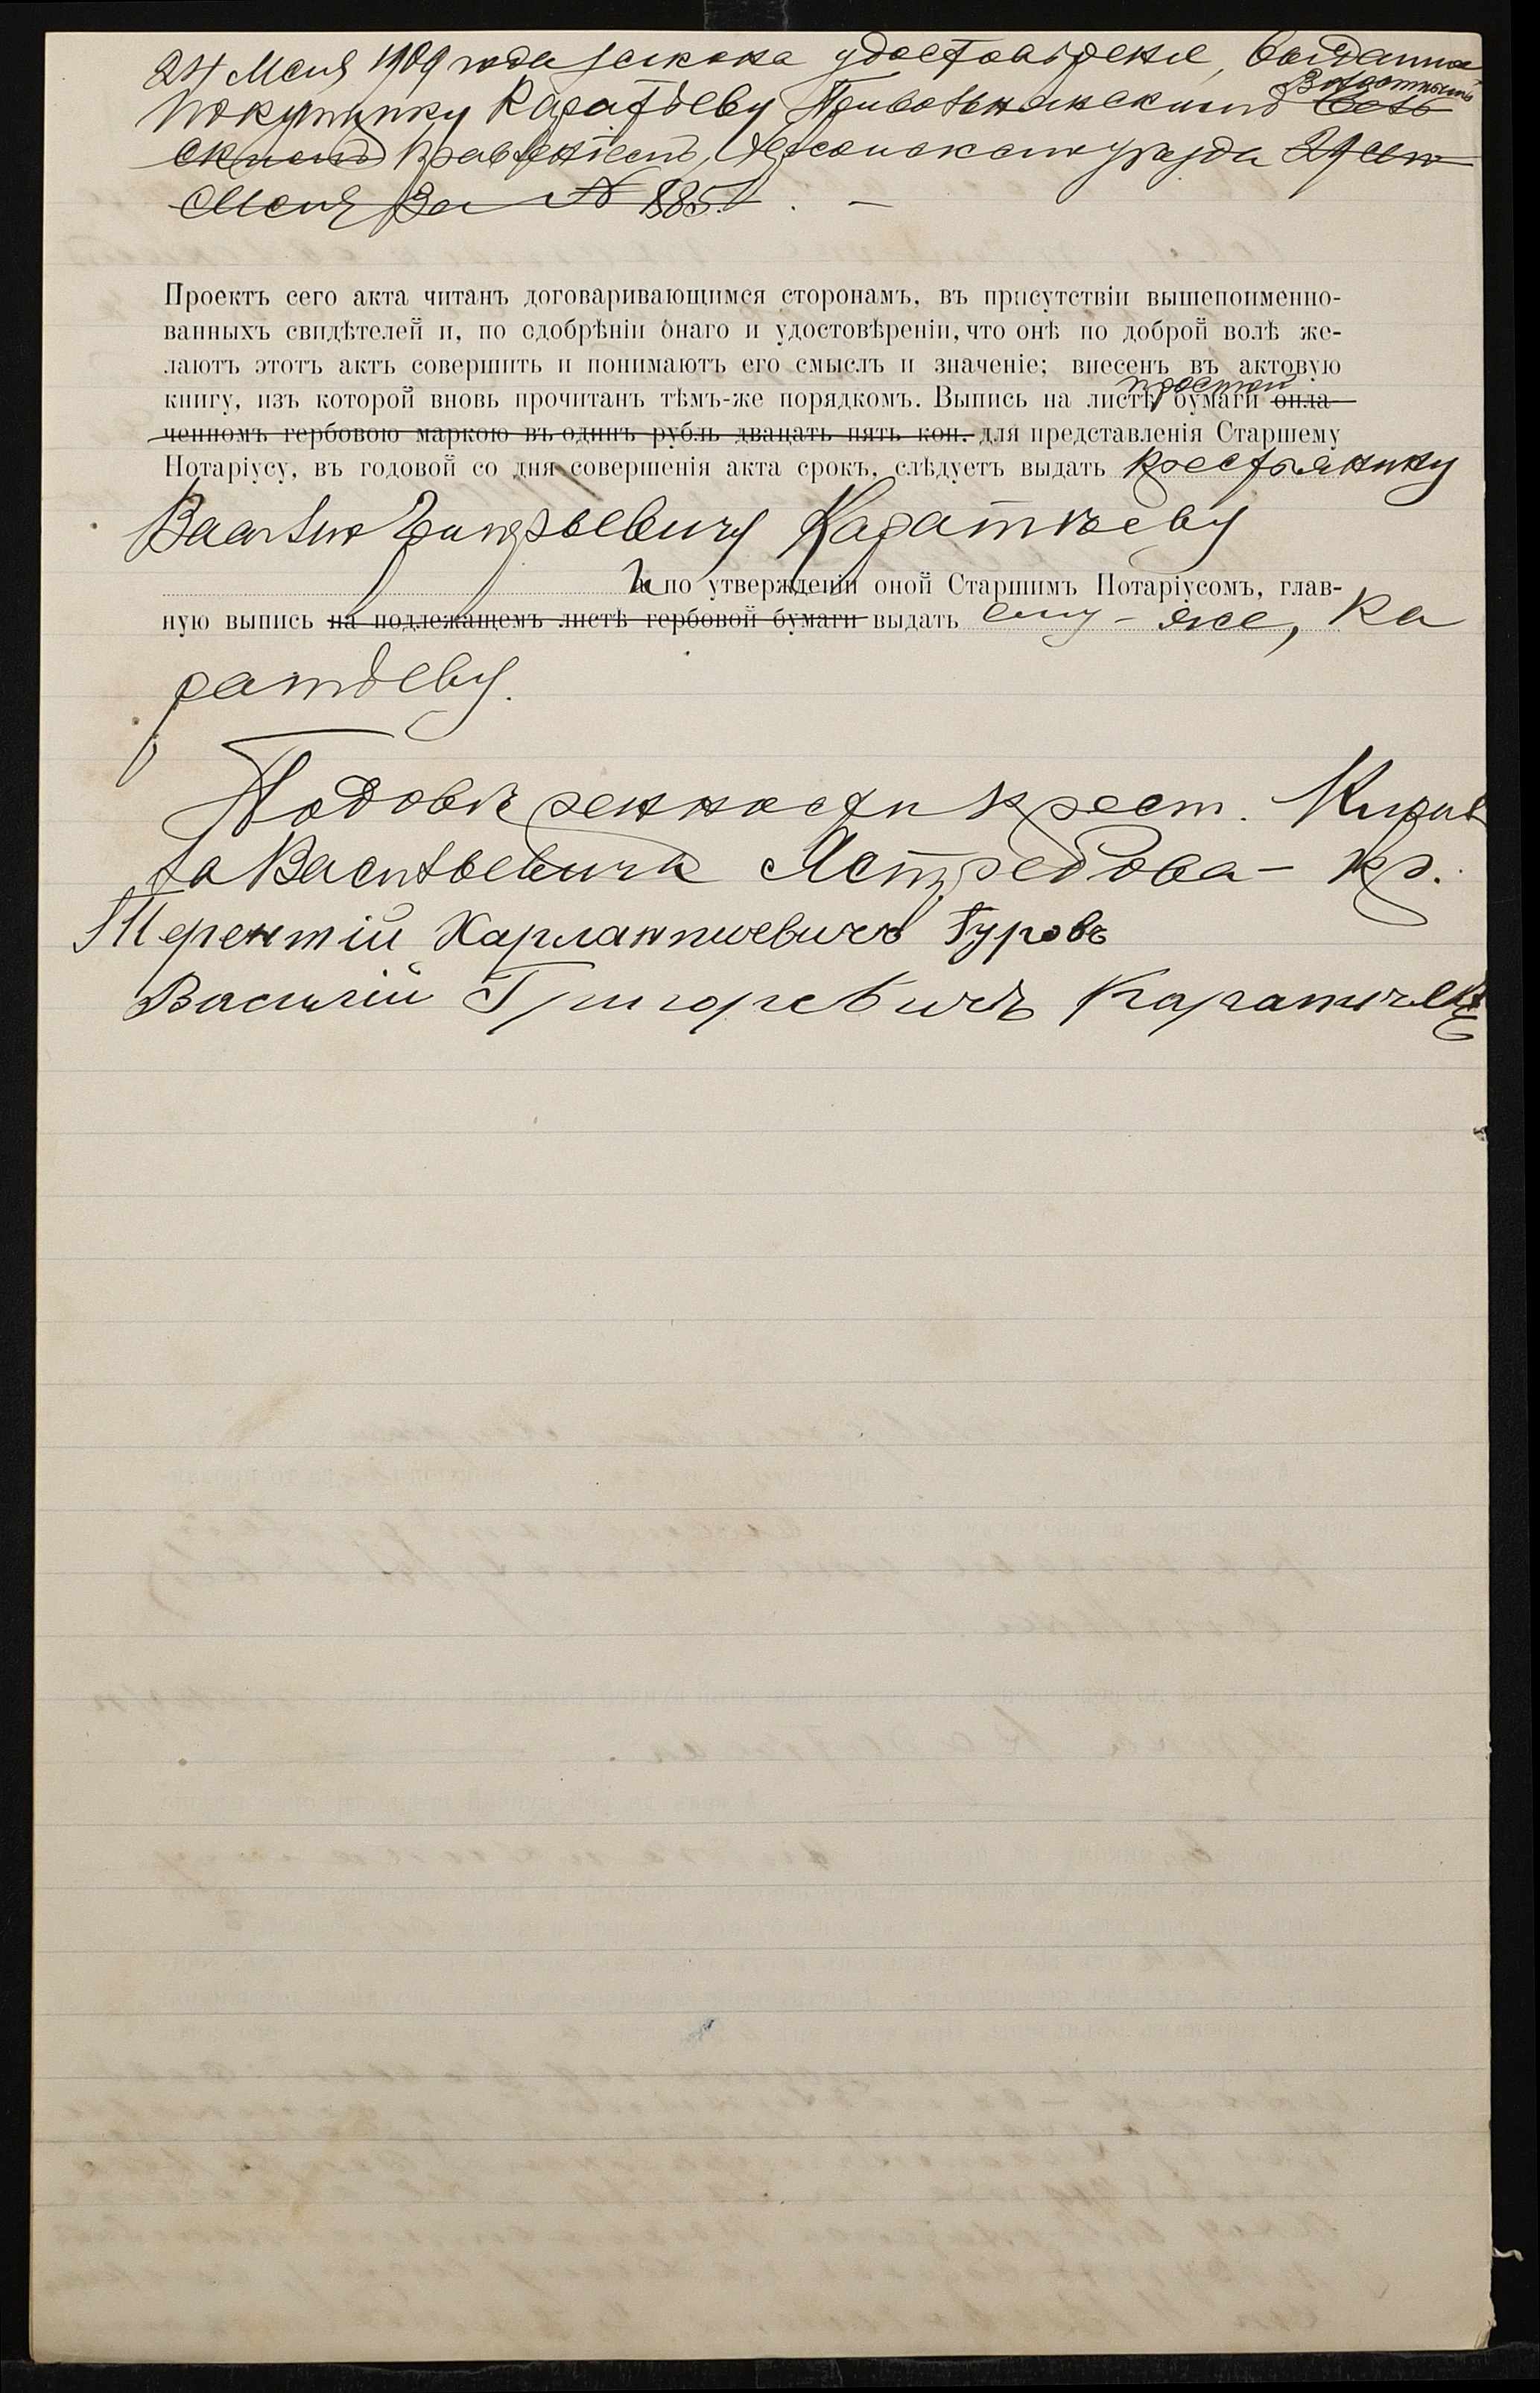 24 Мая 1909 года закона удостовѣренiе, выданное
покупщику Каратѣеву Привольнянскимъ Волостнымъ Сель
скимъ правленiемъ, Херсонскаго уѣзда 29 сего
Мая за № 885.
Проектъ сего акта читанъ договаривающимся сторонамъ, въ присутствіи вышепоименно-
ванныхъ свидѣтелей и, по сдобрѣніи онаго и удостовѣреніи, что онѣ по доброй волѣ же-
лаютъ этотъ актъ совершить и понимаютъ его смыслъ и значеніе; внесенъ въ актовую
книгу, изъ которой вновь прочитанъ тѣмъ-же порядкомъ. Выпись на листѣ простой бумаги опла-
ченномъ гербовою маркою въ одинъ рубль двацать пять коп. для представленія Старшему
Нотаріусу, въ годовой со дня совершенія акта срокъ, слѣдуетъ выдать крестьянину
Василію Григорьевичу Каратѣеву
а по утвержденіи оной Старшимъ Нотаріусомъ, глав-
ную выпись на подлежащемъ листѣ гербовой бумаги выдать ему-же, Ка
ратѣеву.
По довѣренности крест. Кирил
ла Васильевича Ястребова - кр.
Терентій Харлампиевичъ Гуровъ
Василій Григоревичъ Каратѣевъ